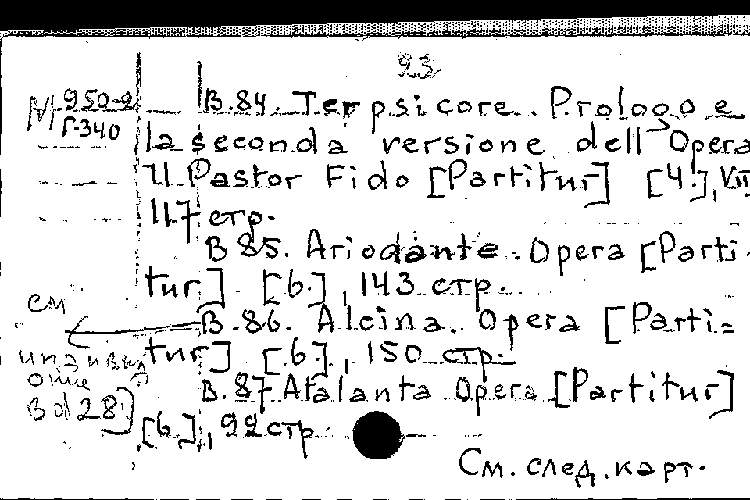 93
М 950-9
Г-340
B.84. Terpsicore. Prologo e
la seconda versione dell'Opera
Il Pastor Fido [Partitur] [4.], VII
117 стр.
B 85. Ariodante. Opera [Parti-
tur] [6.], 143 стр.
B.86. Alcina. Opera [Parti=
tur] [6.], 150 стр.
B.87 Atalanta Opera [Partitur]
[6.], 92 стр.
см
Bd 28]
См. след. карт.